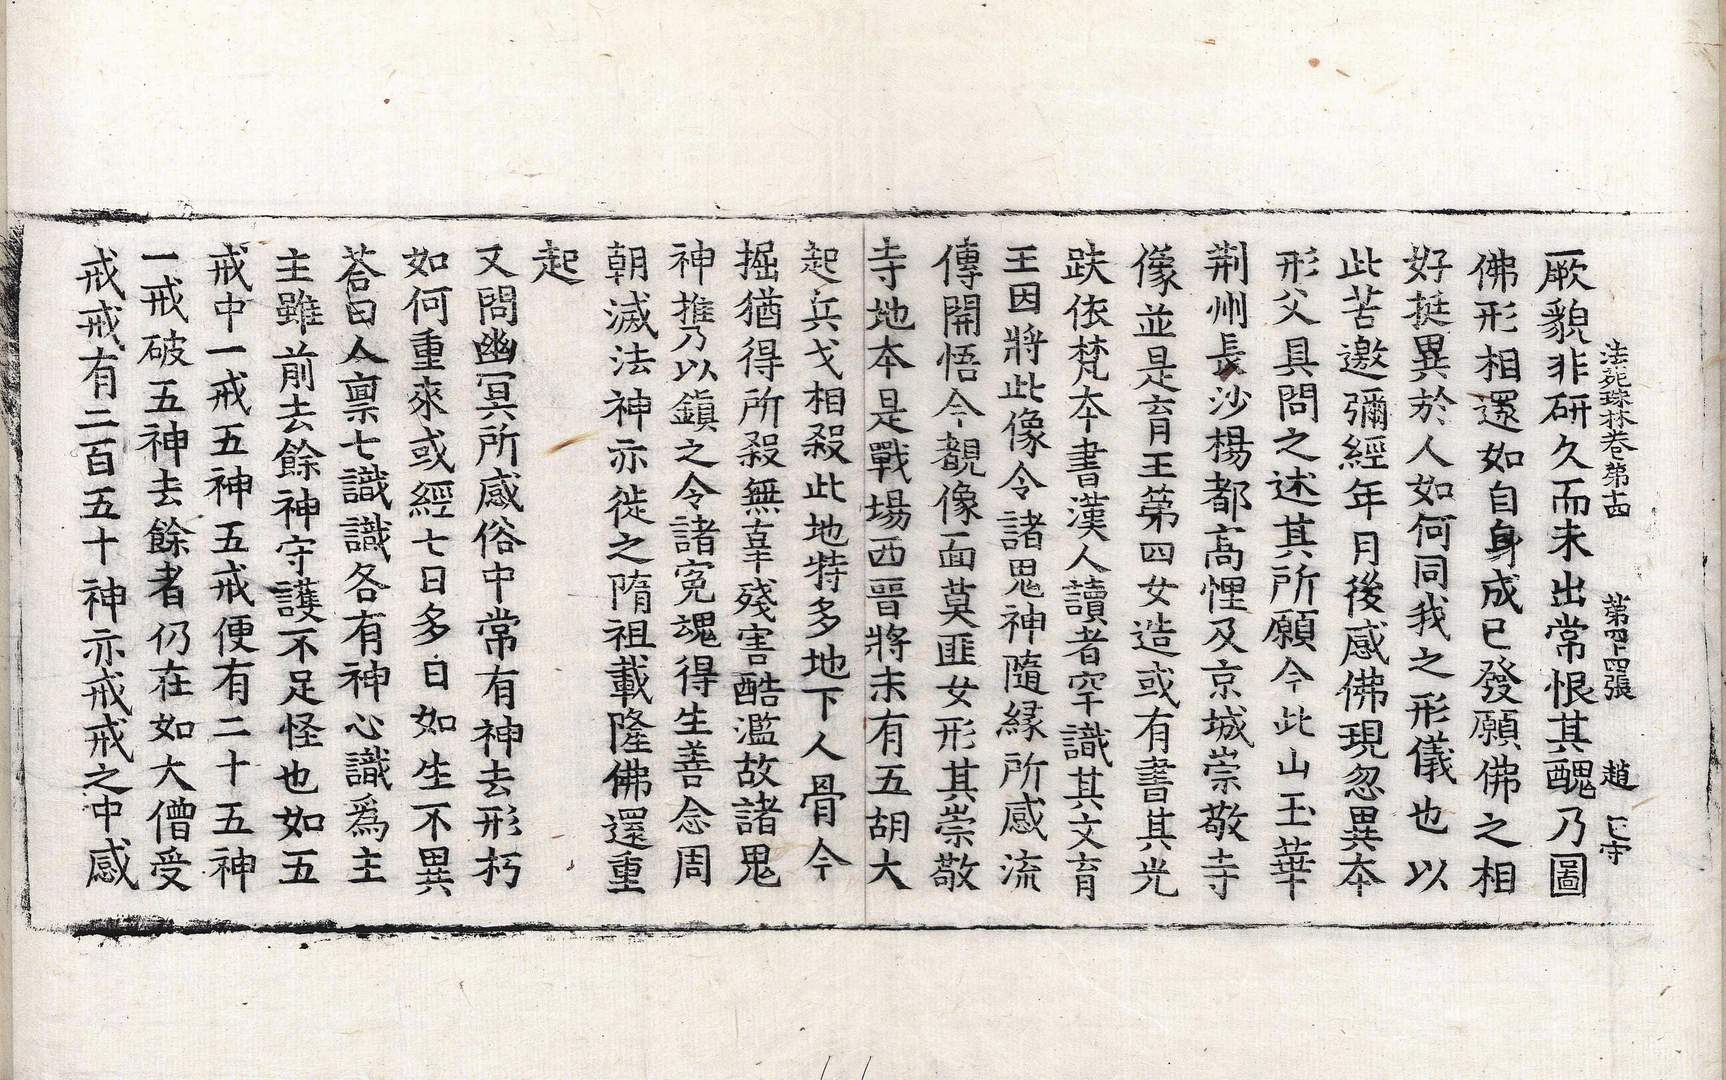 法苑珠林卷第十四 第四十四張 趙 守
厥貌非研久而未出常恨其醜乃圖
佛形相還如自身成已發願佛之相
好挺異於人如何同我之形儀也以
此苦邀彌經年月後感佛現忽異本
形父具問之述其所願今此山玉華
荆州長沙楊都高悝及京城崇敬寺
像並是育王第四女造或有書其光
趺依梵本書漢人讀者罕識其文育
王因將此像令諸鬼神隨緣所感流
傳開悟今覩像面莫匪女形其崇敬
寺地本是戰場西晉將末有五胡大
起兵戈相殺此地特多地下人骨今
掘猶得所殺無辜殘害酷濫故諸鬼
神携乃以鎮之令諸寃魂得生善念周
朝滅法神亦徙之隋祖載隆佛還重
起
又問幽冥所感俗中常有神去形朽
如何重來或經七日多日如生不異
荅曰人禀七識識各有神心識爲主
主雖前去餘神守護不足怪也如五
戒中一戒五神五戒便有二十五神
一戒破五神去餘者仍在如大僧受
戒戒有二百五十神亦戒戒之中感